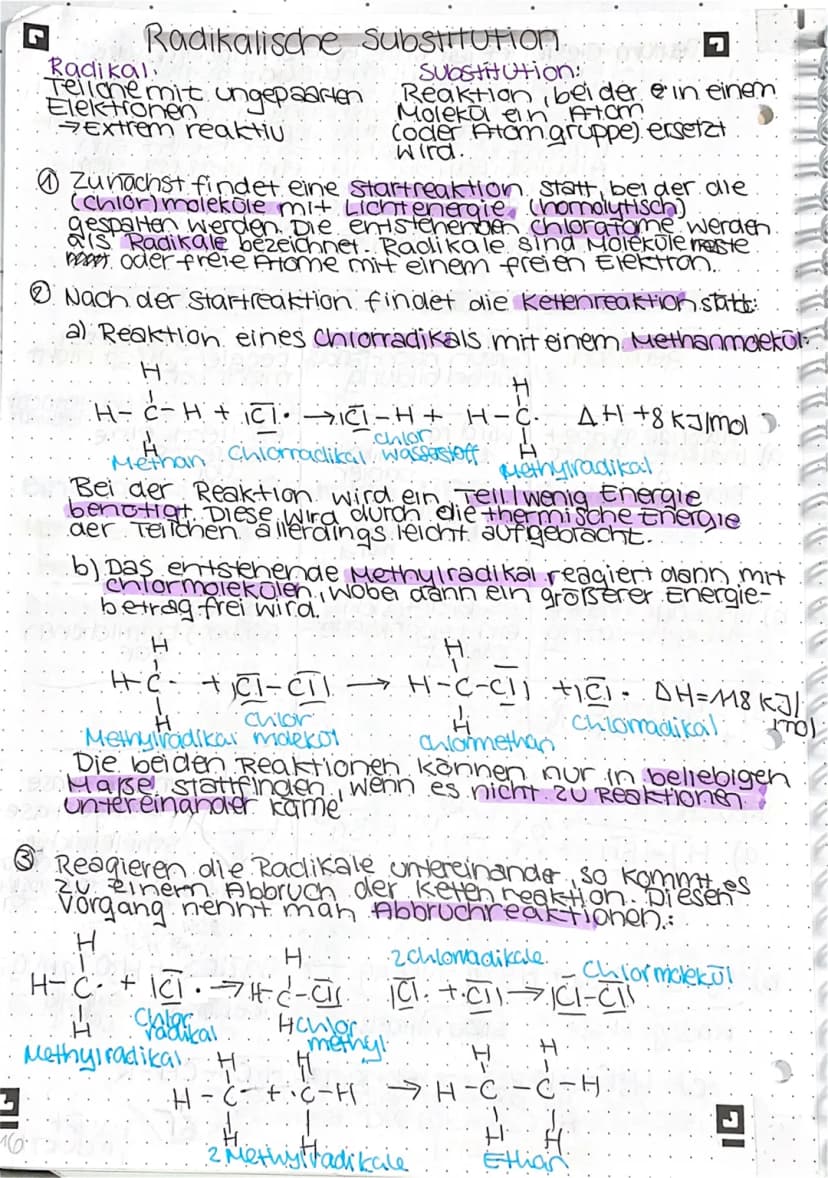 Radikalische Substitution
Radikal:
Teilche mit ungepaarten
Elektionen
→ Extrem reaktiv
Substitution:
Reaktion, bei der ein einem
Molekül ein Atom
(oder Atomgruppe) ersetzt
wird.
① Zunächst findet eine Startreaktion statt, bei der die
(Chlor)moleküle mit Lichtenergie (homolytisch)
gespalten werden. Die entstehenden Chloratome werden
als Radikale bezeichnet. Radikale sind Moleküle reste
oder freie Atome mit einem freien Elektron.
② Nach der Startreaktion findet die Kettenreaktion statt:
a) Reaktion eines Chlorradikals mit einem Methanmolekül:
H H
H-C-H + |Cl· → |Cl-H + H-C· ΔH +8 KJ/mol
H H
Methan Chlorradikal Chlorwasserstoff Methylradikail
Bei der Reaktion wird ein Teil/wenig Energie
benötigt. Diese wird durch die thermische Energie
der Teilchen allerdings leicht aufgebracht.
b) Das entstehende Methylradikal reagiert dann mit
Chlormolekülen, wobei dann ein größerer Energie-
betrag frei wird.
H H
H-C· + |Cl-Cl| → H-C-Cl| + |Cl· ΔH=M8 KJ/mol
H H
Methylradikal Chlormolekül Chlormethan Chlorradikal
Die beiden Reaktionen können nur in beliebigen
Maße stattfinden, wenn es nicht zu Reaktionen
untereinander käme'
③ Reagieren die Radikale untereinander, so kommt es
zu einem Abbruch der Ketenreaktion. Diesen
Vorgang nennt man Abbruchreaktionen:
H H 2 Chlorradikale Chlormolekül
H-C· + |Cl· → H-C-Cl| |Cl· + ·Cl| → |Cl-Cl|
H H
Methylradikal Chlorradikal Chlormethyl
H H H H
H-C· + ·C-H → H-C-C-H
H H H H
2 Methylradikale Ethan
16